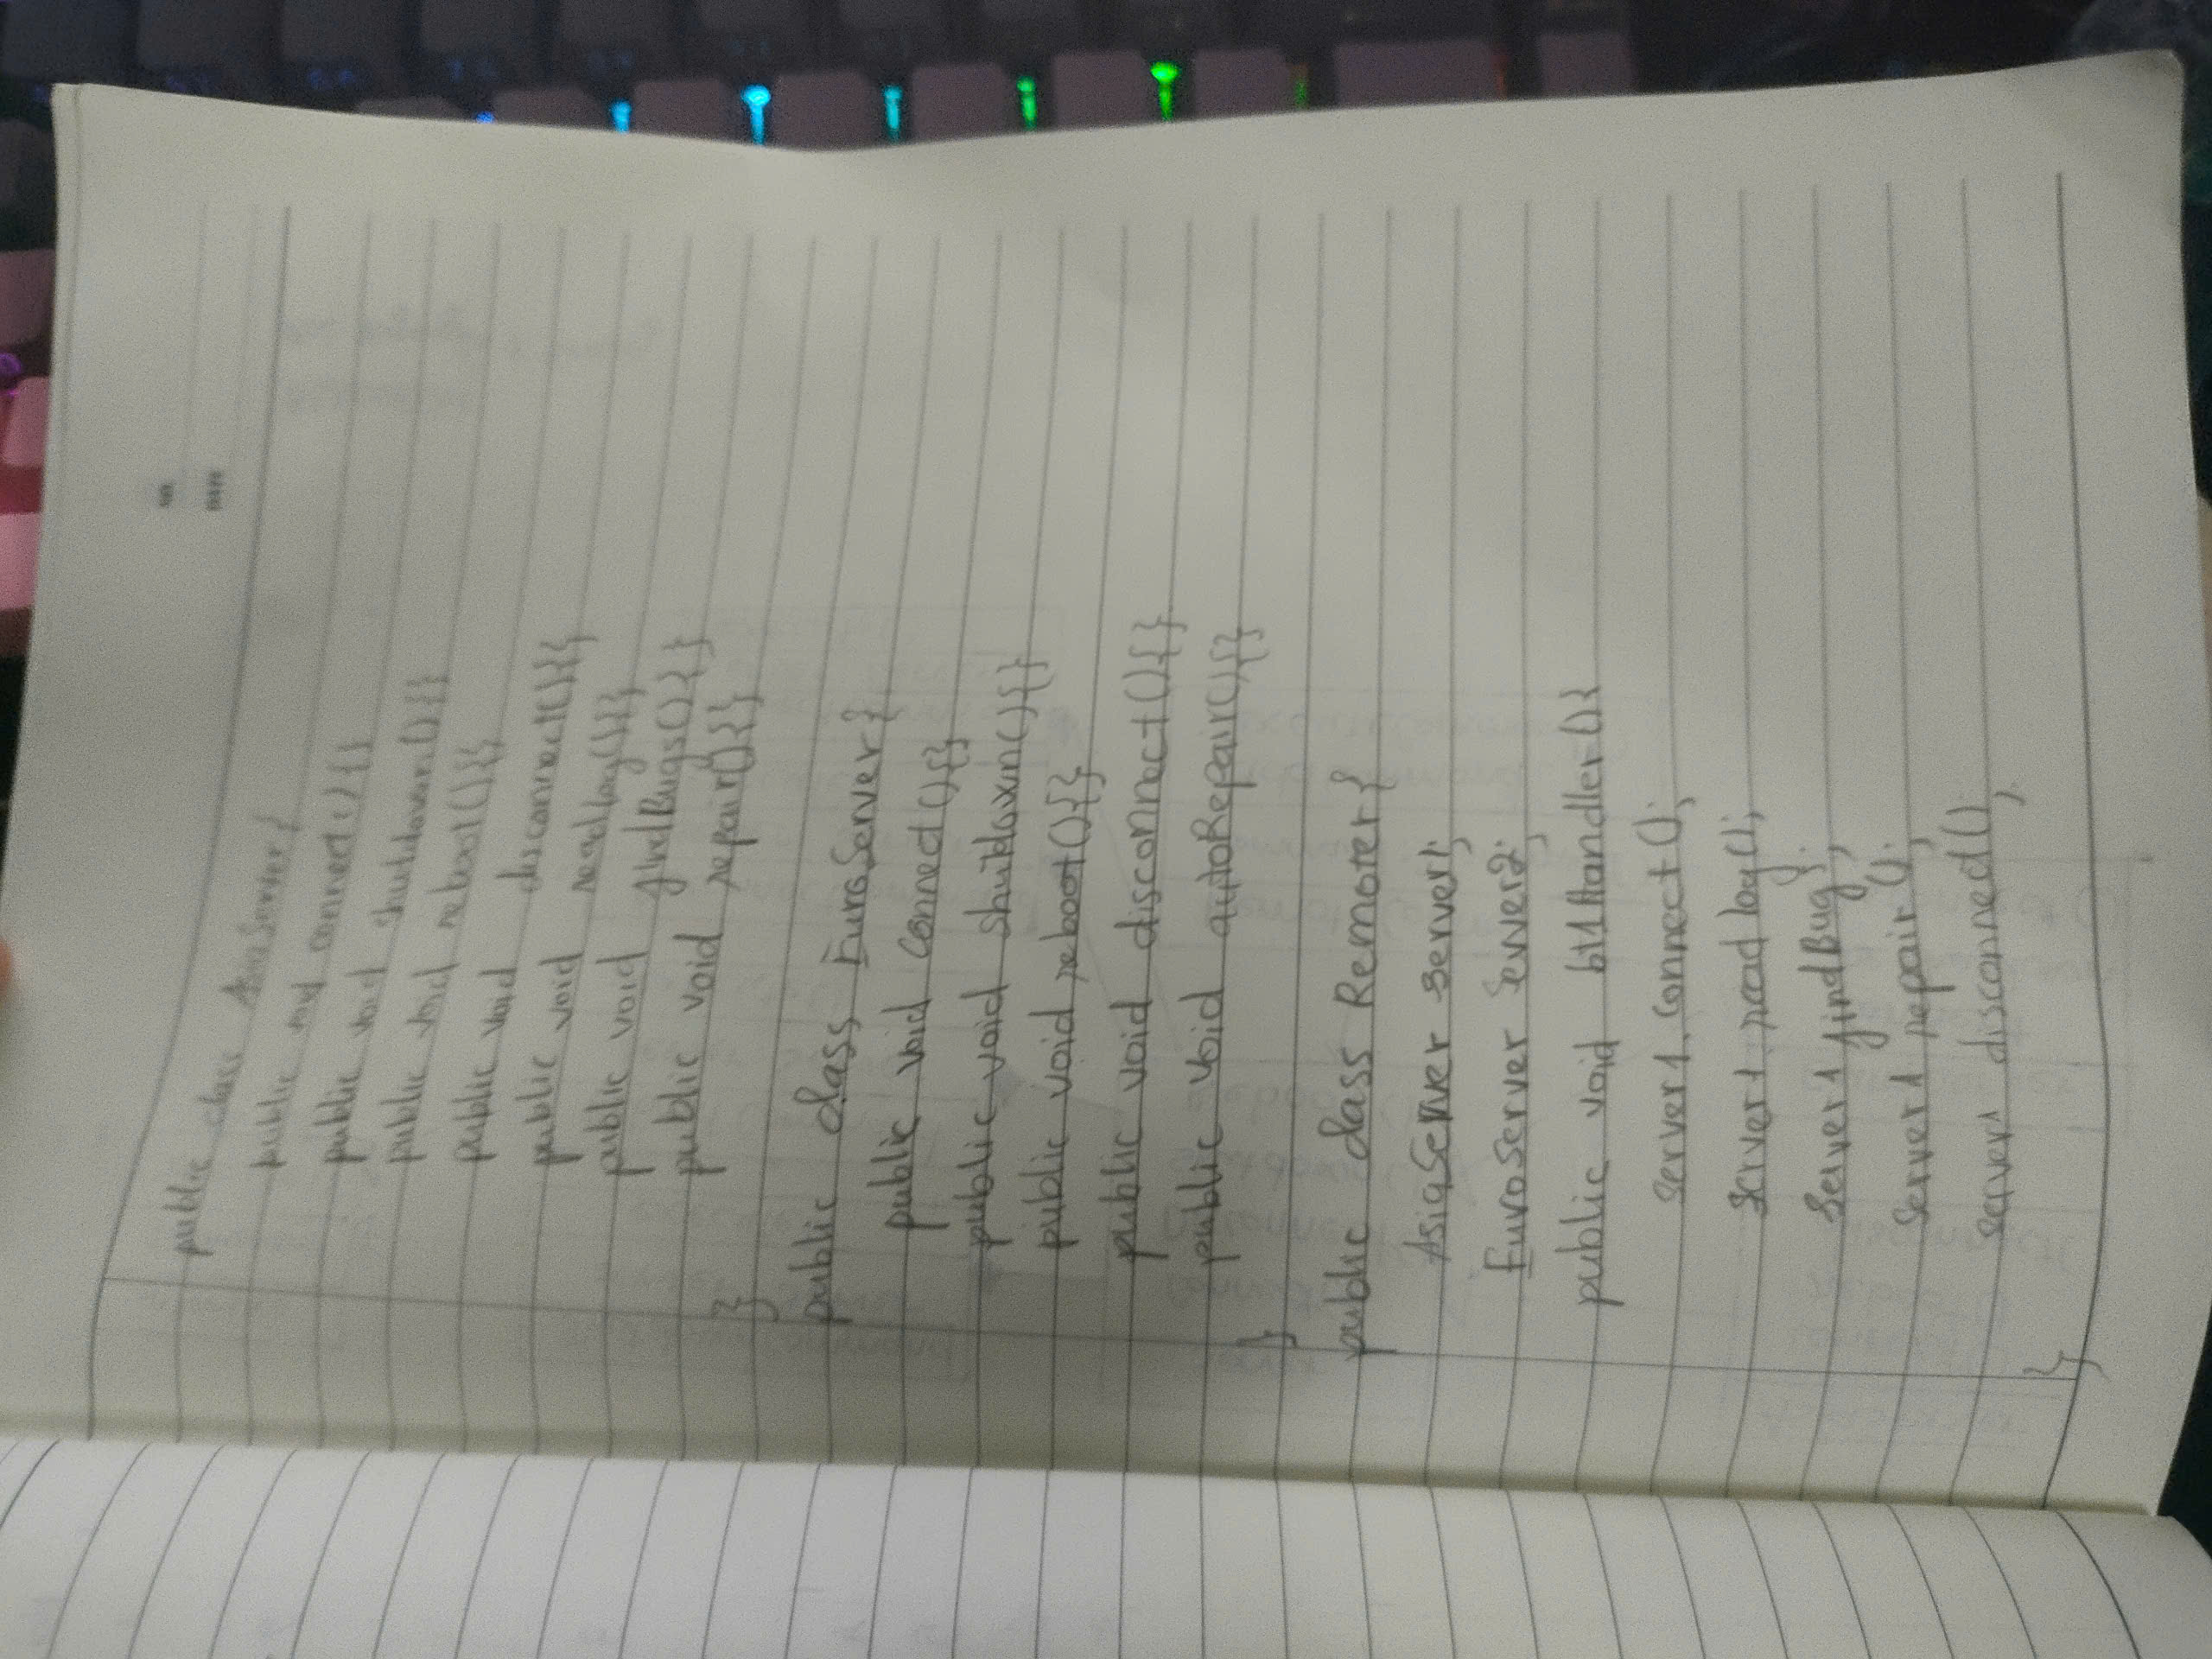 public class AsiaServer{
public
public void connect(){}
public void shutdown(){}
public void reboot(){}
public void disconnect(){}
public void readLog(){}
public void findBugs(){}
public void repair(){}
}
public class EuroServer{
public void connect(){}
public void shutdown(){}
public void reboot(){}
public void disconnect(){}
public void autoRepair(){}
}
public class Remoter{
AsiaServer server1;
EuroServer server2;
public void btnHandler(){
server1.connect();
server1.readlog();
server1 findBug;
server1 repair();
server1 disconnect();
}